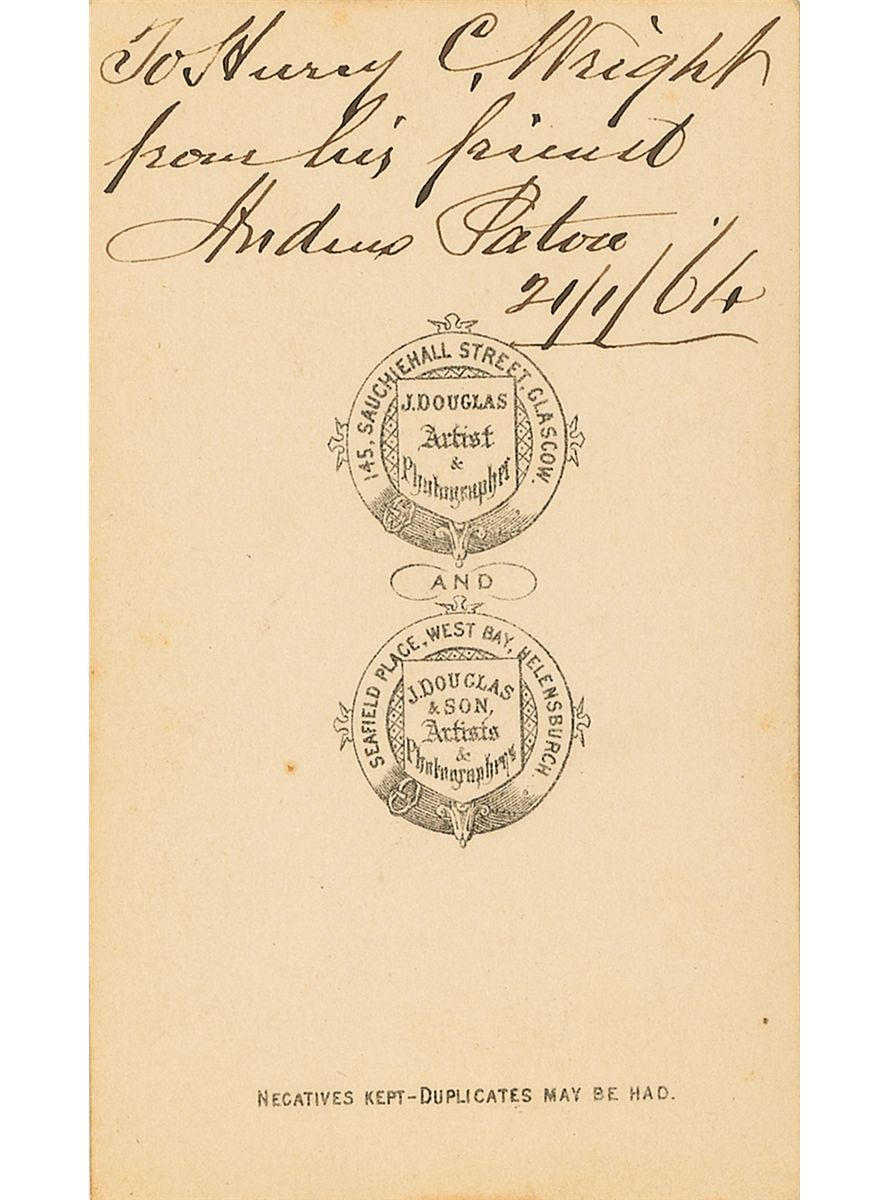 To Henry C. Wright
from his friend
Andrew Paton
21/1/64
145, SAUCHIEHALL STREET, GLASGOW.
J. DOUGLAS
Artist
&
Photographer
AND
SEAFIELD PLACE, WEST BAY, HELENSBURGH.
J. DOUGLAS
& SON,
Artists
&
Photographers
NEGATIVES KEPT-DUPLICATES MAY BE HAD.